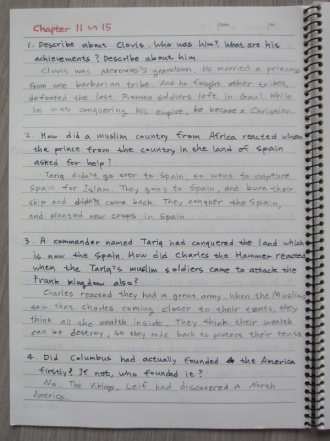 Chapter 11 ~ 15
1. Describe about Clovis. Who was him? What are his
achievements? Describe about him.
Clovis was Meroveus's grandson. He married a princess
from one barbarian tribe. And he fought other tribes,
defeated the last Roman soldiers left in Gaul. While
he was conquering his empire, he became a Christian.
2. How did a muslim country from Africa reacted when
the prince from the country in the land of Spain
asked for help?
Tariq didn't go over to Spain, so went to capture
Spain for Islam. They going to Spain, and burn their
ship and didn't come back. They conquer the Spain,
and planted new crops in Spain.
3. A commander named Tariq had conquered the land which
is now the Spain. How did Charles the Hammer reacted
when the Tariq's muslim soldiers came to attack the
Frank kingdom also?
Charles reacted they had a great army. When the Muslims
saw that Charles coming closer to their tents, they
think all the wealth inside. They think their wealth
can be destroy, so they rode back to protect their tents.
4. Did Columbus had actually founded the America
firstly? If not, who founded it?
No. The Vikings, Leif had discovered a North
America.